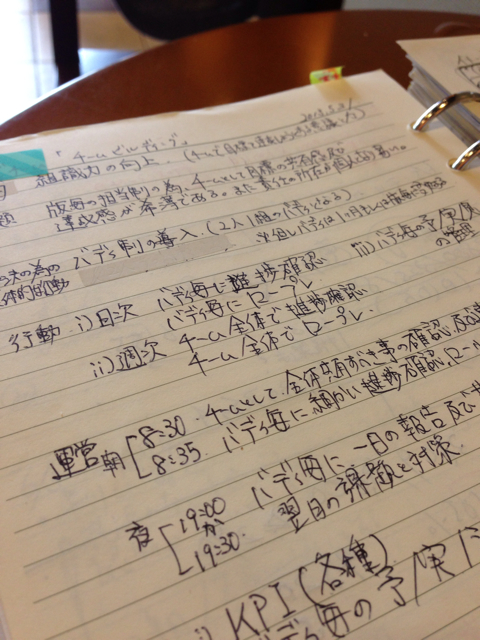 2013.5.31
「チームビルディング」
組織力の向上. (チームで目標を達成しようとする意識
題 版毎の担当制の為、チームとして目標の共有
達成感が希薄である。また責任の所在が
解決の為の バディ制の導入 (2人1組のバディによる)
具体的行動 ※但しバディは1ヶ月もしくは
行動 i) 日次 バディ毎に進捗確認 iii) バディ毎の予/実/
バディ毎にロープレ の管理
ii) 週次 チーム全体で進捗確認
チーム全体でロープレ.
運営 朝 8:30 ・チームとして、全体共有すべき事の確認
8:35 ・バディ毎に細かい進捗確認、ロール
夜 19:00 バディ毎に一日の報告及び
か 翌日の課題と対策.
19:30.
i) KPI (各種)
バディ毎の予/実